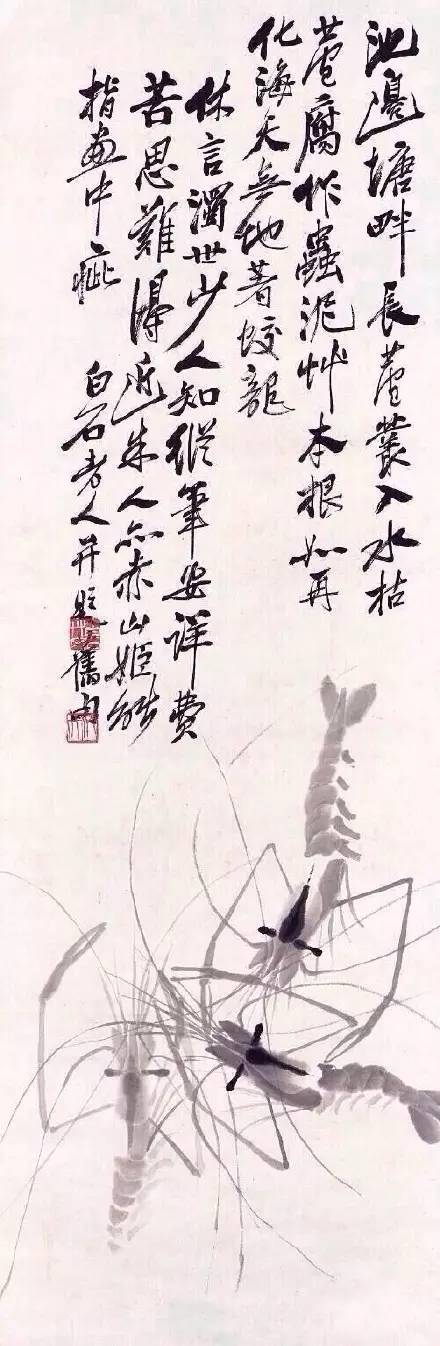 池邊塘畔長蘆叢入水枯
蘆腐作蟲泥艸本根如再
化海天無地著蛟龍
休言濁世少人知縱筆安詳費
苦思難得近朱人亦赤山姬能
指畫中疵
白石老人并題舊句